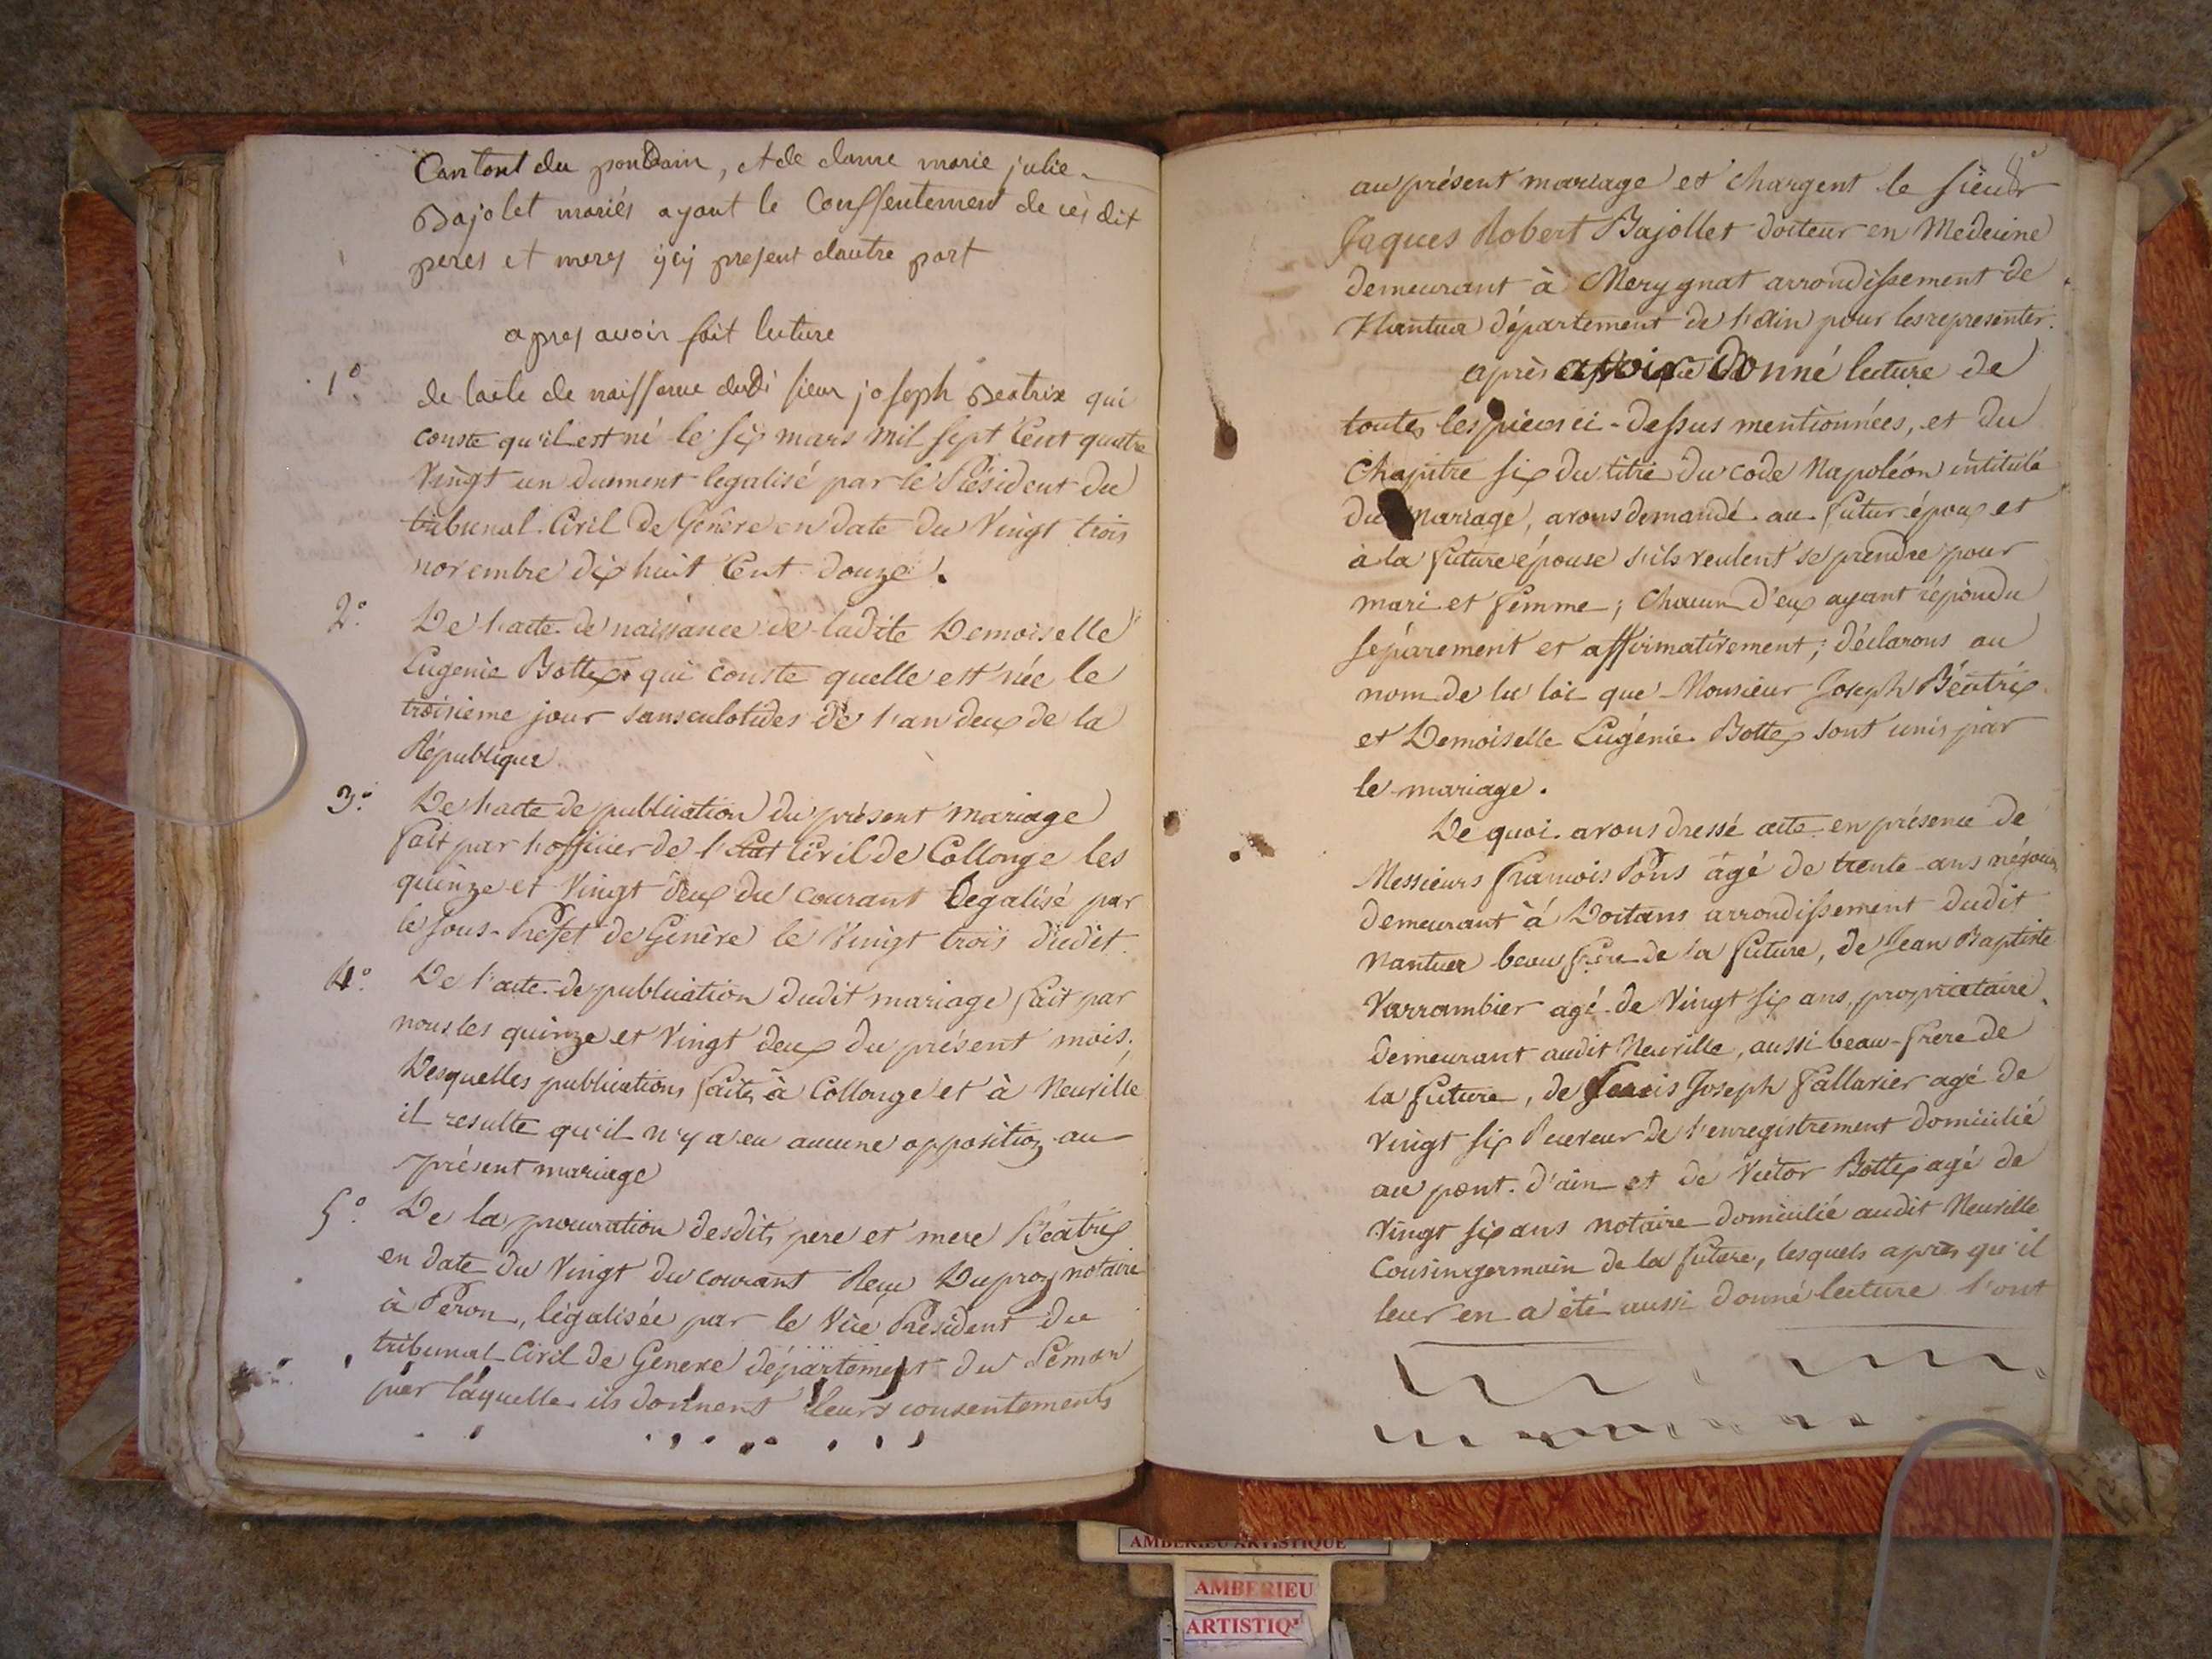 Cantont du pontDain, et de dame marie julie
Bajolet mariés ayant le Conssentement de ces dit
peres et merej ycij present dautre part
aprej avoir fait lecture
1º de lacte de naissance dudi sieur joseph Beatrix qui
conste qu'il est né le six mars mil sept Cent quatre
Vingt un duement legalisé par le Président du
tribunal Civil de Genève en date du Vingt trois
novembre dix huit Cent douze.
2º De l'acte de naissance de ladite Demoiselle
Eugenie Bottex qui conste quelle est née le
troisieme jour sansculotides de l'an deux de la
République
3º De l'acte de publication du présent mariage
fait par l'officier de l'Etat Civil de Collonge les
quinze et Vingt deux du courant Legalisé par
le sous-Préfet de Genève le Vingt trois dudit.
4º De l'acte de publication dudit mariage fait par
nous les quinze et Vingt deux du présent mois.
Desquelles publications faites à Collonge et à Neuville
il resulte qu'il n'y a eu aucune opposition au
présent mariage
5º De la procuration desdits pere et mere Béatrix
en date du Vingt du courant Reçue Duproz notaire
à Péron, légalisée par le Vice Président du
tribunal Civil de Geneve département du Léman
par laquelle ils donnent leurs consentements
au présent mariage et chargent le sieur
Jaques Robert Bajollet docteur en Medecine
demeurant à Merygnat arrondissement de
Nantua département de l'ain pour les representer.
après avoir donné lecture de
toutes les pièces ci-dessus mentionnées, et du
Chapitre six du titre du code Napoléon intitulé
du Mariage, avons demandé au futur époux et
à la future épouse s'ils veulent se prendre pour
mari et femme; chacun d'eux ayant répondu
séparement et affirmativement; déclarons au
nom de la loi que Monsieur Joseph Béatrix
et Demoiselle Eugénie Bottex sont unis par
le mariage.
De quoi avons dressé acte en présence de
Messieurs francois Pons agé de trente ans négociant
demeurant à Dortans arrondissement dudit
Nantua beau frere de la future, de Jean Baptiste
Varrambier agé de Vingt six ans, proprietaire
demeurant audit Neuville, aussi beau-frere de
la future, de Joseph Fallavier agé de
vingt six Receveur de l'enregistrement domicilié
au pont d'ain et de Victor Bottex agé de
Vingt six ans notaire domicilié audit Neuville
Cousin germain de la future, lesquels après qu'il
leur en a été aussi donné lecture l'ont
AMBERIEU ARTISTIQUE
AMBERIEU
ARTISTIQ